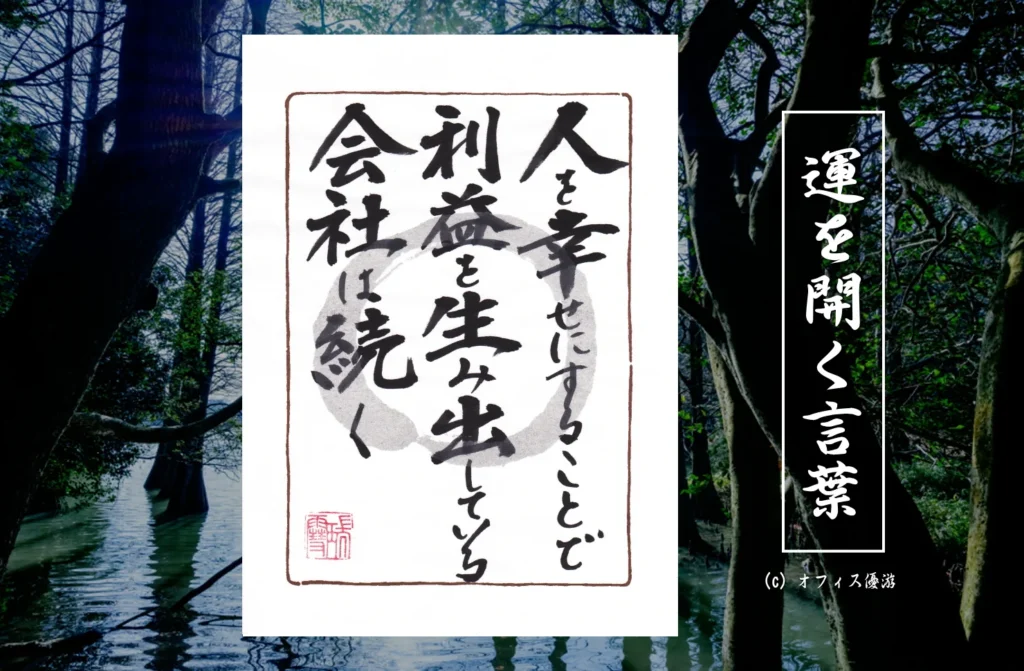 運を開く言葉
人を幸せにすることで
利益を生み出している
会社は続く
(c) オフィス優游